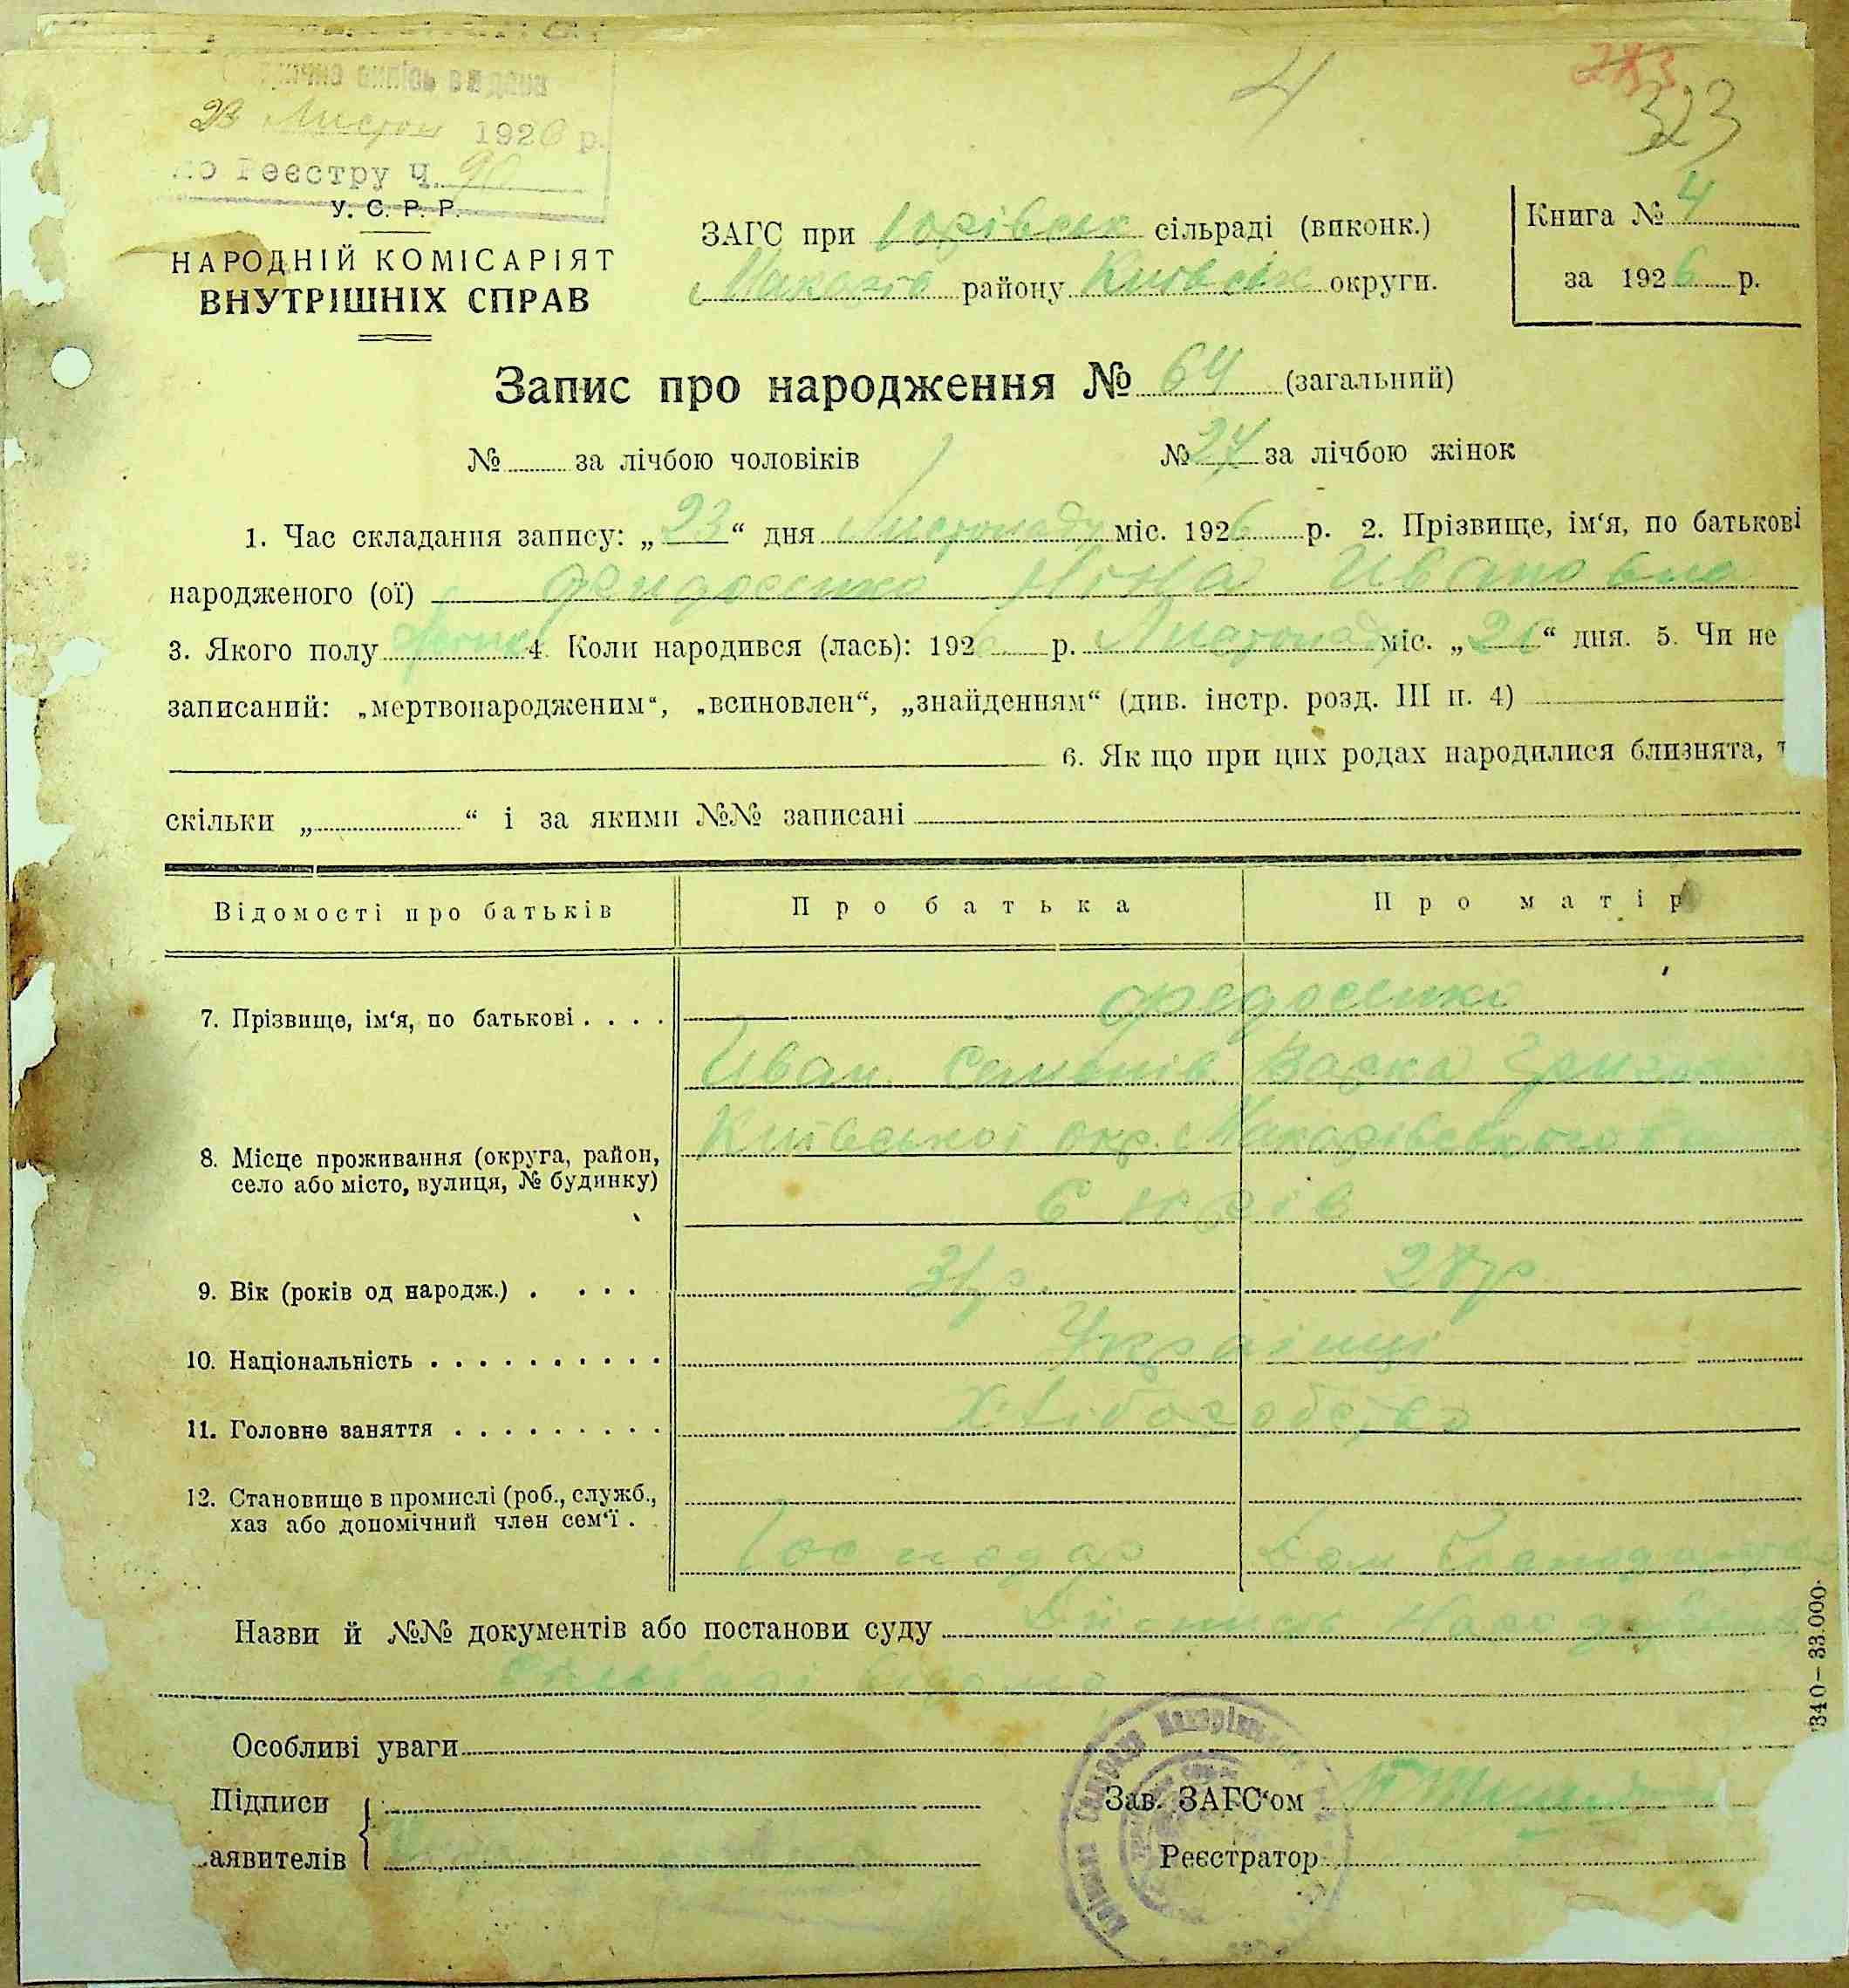 4 323
випісь видана
23 Листоп 1926 р.
по Реєстру Ч. 90
У. С. Р. Р.
НАРОДНІЙ КОМІСАРІЯТ
ВНУТРІШНІХ СПРАВ
ЗАГС при Юрівськ сільраді (виконк.)
Макарів району Київськ округи.
Книга № 4
за 1926 р.
Запис про народження № 64 (загальний)
№ за лічбою чоловіків № 27 за лічбою жінок
1. Час складання запису: „23“ дня Листопаду міс. 1926 р. 2. Прізвище, ім‘я, по батькові
народженого (ої) Фидосенко Ніна Ивановна
3. Якого полу 4. Коли народився (лась): 1926 р. Листопаду міс. „21“ дня. 5. Чи не
записаний: „мертвонародженим“, „всиновлен“, „знайденням“ (див. інстр. розд. III п. 4)
6. Як що при цих родах народилися близнята, т
скільки „ “ і за якими №№ записані
Відомості про батьків Про батька Про матір
7. Прізвище, ім‘я, по батькові . . . . Федосенко
Иван Семенів Варка
8. Місце проживання (округа, район, Київської окр. Макарівського
село або місто, вулиця, № будинку) с Юрів
9. Вік (років од народж.) . . . . 31 р. 28 р
10. Національність . . . . . . . . . . Українці
11. Головне заняття . . . . . . . . . Хліборобство
12. Становище в промислі (роб., служб.,
хаз або допомічний член сем‘ї . Господар Дом
Назви й №№ документів або постанови суду
Особливі уваги
Підписи
аявителів
Зав. ЗАГС‘ом
Реєстратор
340 – 33.000